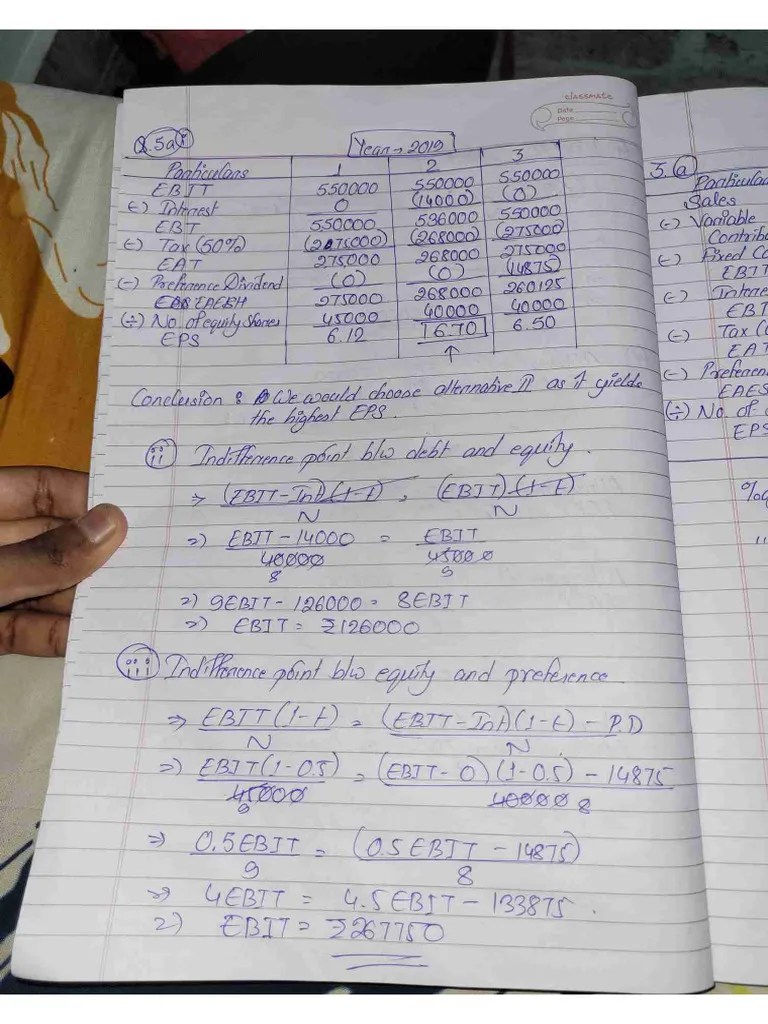 classmate
Date
Page
Q.5a i
Year → 2019
Particulars 1 2 3
EBIT 550000 550000 550000
(-) Interest 0 (14000) (0)
EBT 550000 536000 550000
(-) Tax (50%) (275000) (268000) (275000)
EAT 275000 268000 275000
(-) Preference Dividend (0) (0) (14875)
EAESH 275000 268000 260125
(÷) No. of equity Shares 45000 40000 40000
EPS 6.12 6.70 6.50
↑
Conclusion : We would choose alternative II as it yields
the highest EPS.
ii Indifference point b/w debt and equity.
⇒ (EBIT-Int)(1-t) = (EBIT)(1-t)
N N
⇒ EBIT - 14000 = EBIT
40000 45000
8 9
⇒ 9EBIT - 126000 = 8EBIT
⇒ EBIT = ₹126000
iii Indifference point b/w equity and preference
⇒ EBIT(1-t) = (EBIT-Int)(1-t) - P.D
N N
⇒ EBIT(1-0.5) = (EBIT-0)(1-0.5) - 14875
45000 40000 8
9
⇒ 0.5EBIT = (0.5EBIT - 14875)
9 8
⇒ 4EBIT = 4.5EBIT - 133875.
⇒ EBIT = ₹267750
5 a
Particular
Sales
(-) Variable
Contrib
(-) Fixed Co
EBIT
(-) Intere
EBT
(-) Tax (
EAT
(-) Preferen
EAES
(÷) No. of
EPS